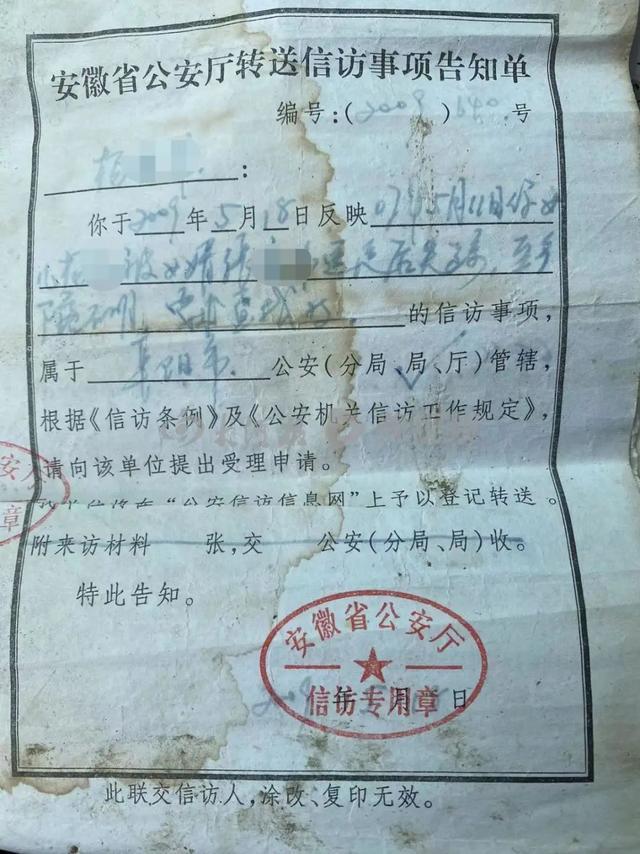 安徽省公安厅转送信访事项告知单
编号:(2009)640号
:
你于2009年5月18日反映07年5月11日你女
被女婿张 后失踪,至今
的信访事项,
属于阜阳市公安(分局、局、厅)管辖,
根据《信访条例》及《公安机关信访工作规定》,
请向该单位提出受理申请。
“公安信访信息网”上予以登记转送。
附来访材料 张,交 公安(分局、局)收。
特此告知。
安徽省公安厅
信访专用章
2009年5月 日
此联交信访人,涂改、复印无效。